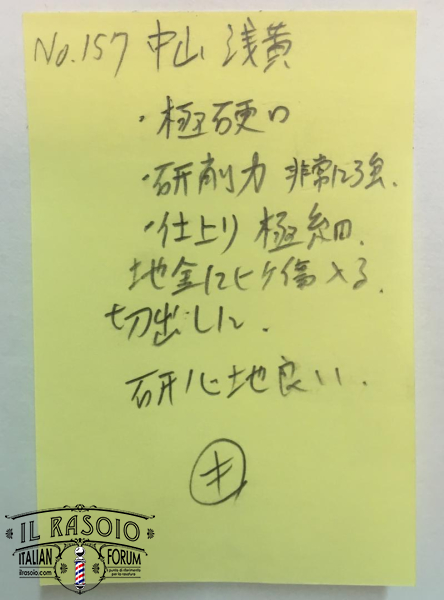 No.157 中山 浅黄
・極硬口
・研削力 非常に強.
・仕上り 極細.
地金にヒケ傷入る.
切出しに.
研心地良い.
キ
IL RASOIO
ITALIAN FORUM
ilrasoio.com
il punto di riferimento
per la rasatura